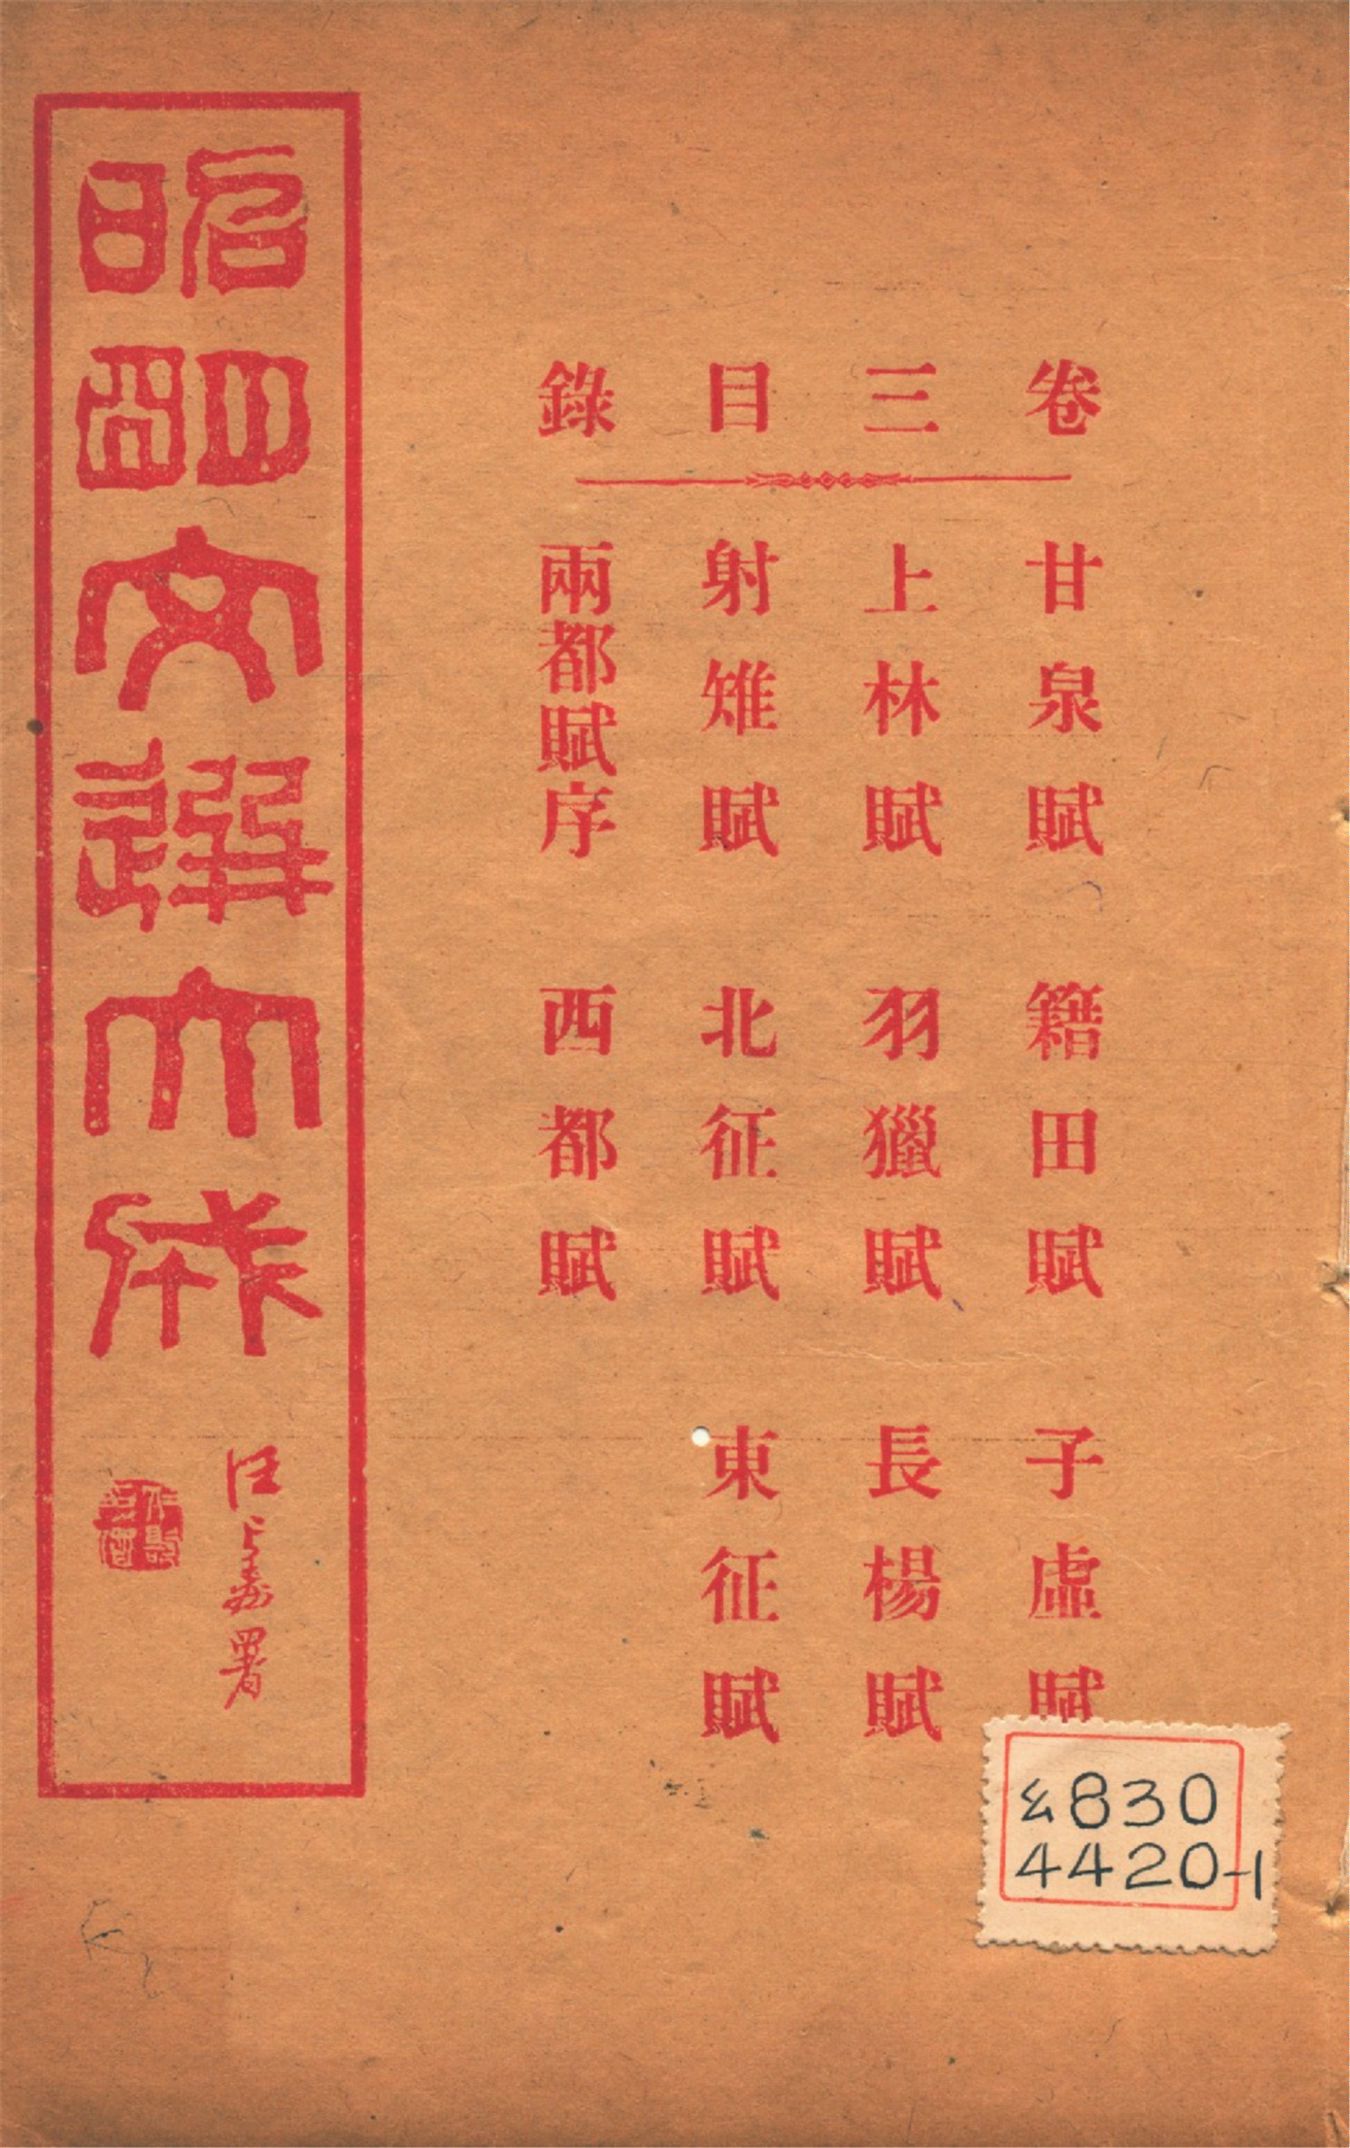 卷三目錄
甘泉賦 籍田賦 子虛賦
上林賦 羽獵賦 長楊賦
射雉賦 北征賦 東征賦
兩都賦序 西都賦
昭明文選大成
汪 署
830
4420-1